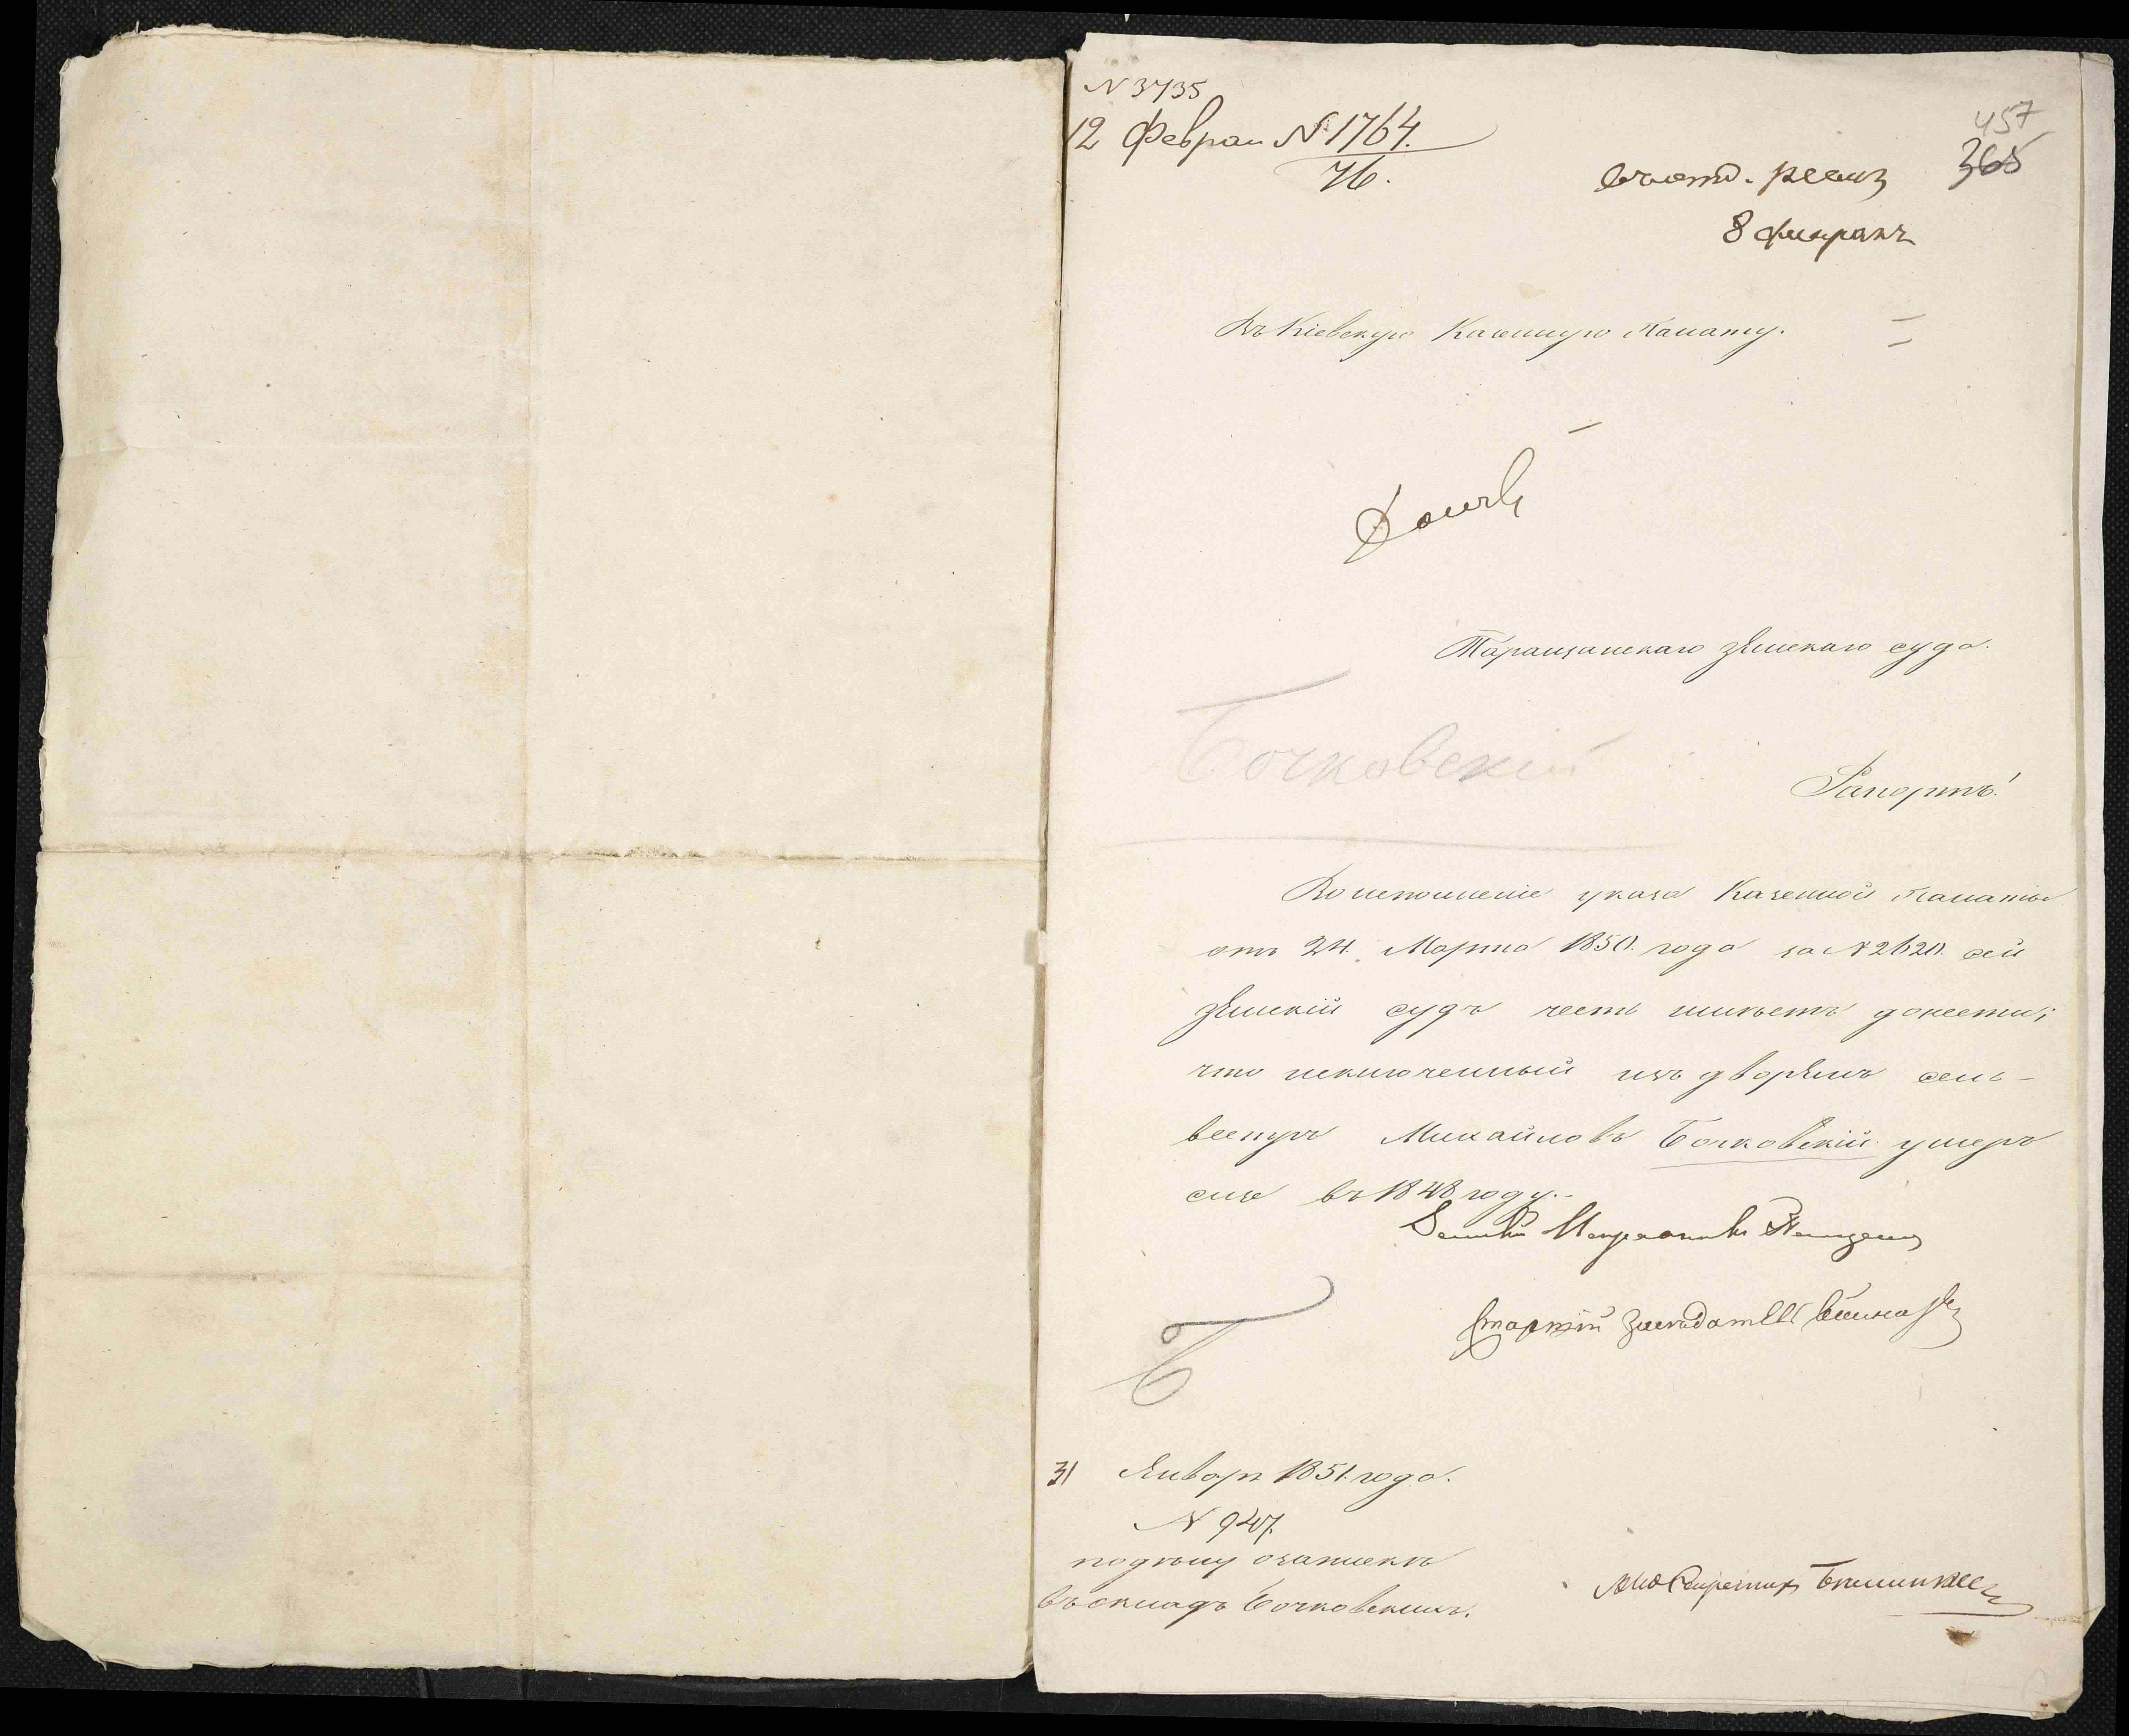 N 3735
12 Феврал N 1764.
76.
457
365
8 февраля
Въ Кіевскую Казенную Палату.
Таращанскаго Земскаго суда.
Бочковскій
Рапортъ.
Во исполненіе указа Казенной Палаты
отъ 24. Марта 1850. года за N 2620. сей
Земскій судъ честь имѣетъ донести;
что исключенный изъ дворянъ Силь-
вестръ Михайловъ Бочковскій умеръ
еще въ 1848 году.
Старшій Засѣдатель
Б
31 Январ 1851. года.
N 947.
по дѣлу о запискѣ
въ окладъ Бочковскихъ.